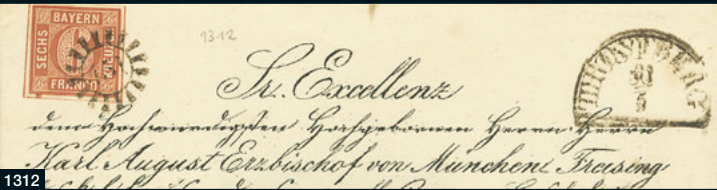 BAYERN
SECHS
KREUZER
FRANCO
6
13·12
30
5
Sr. Excellenz
dem Hochwürdigsten Hochgebornen Herrn Herrn
Karl August Erzbischof von München Freising
1312